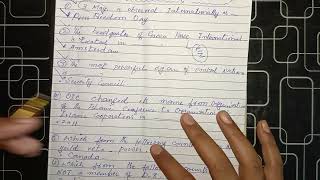 3 May is observed Internationally is
Press Freedom Day
The headquarter of Green Peace International
is located in
Amsterdam
The most powerful organ of United Nations
is
Security Council
OIC changed its name from Organization
of the Islamic Conference to Organization of
Islamic Cooperation in
2011
Which from the following countries
veto power
Canada
Which from the following
NOT a member of